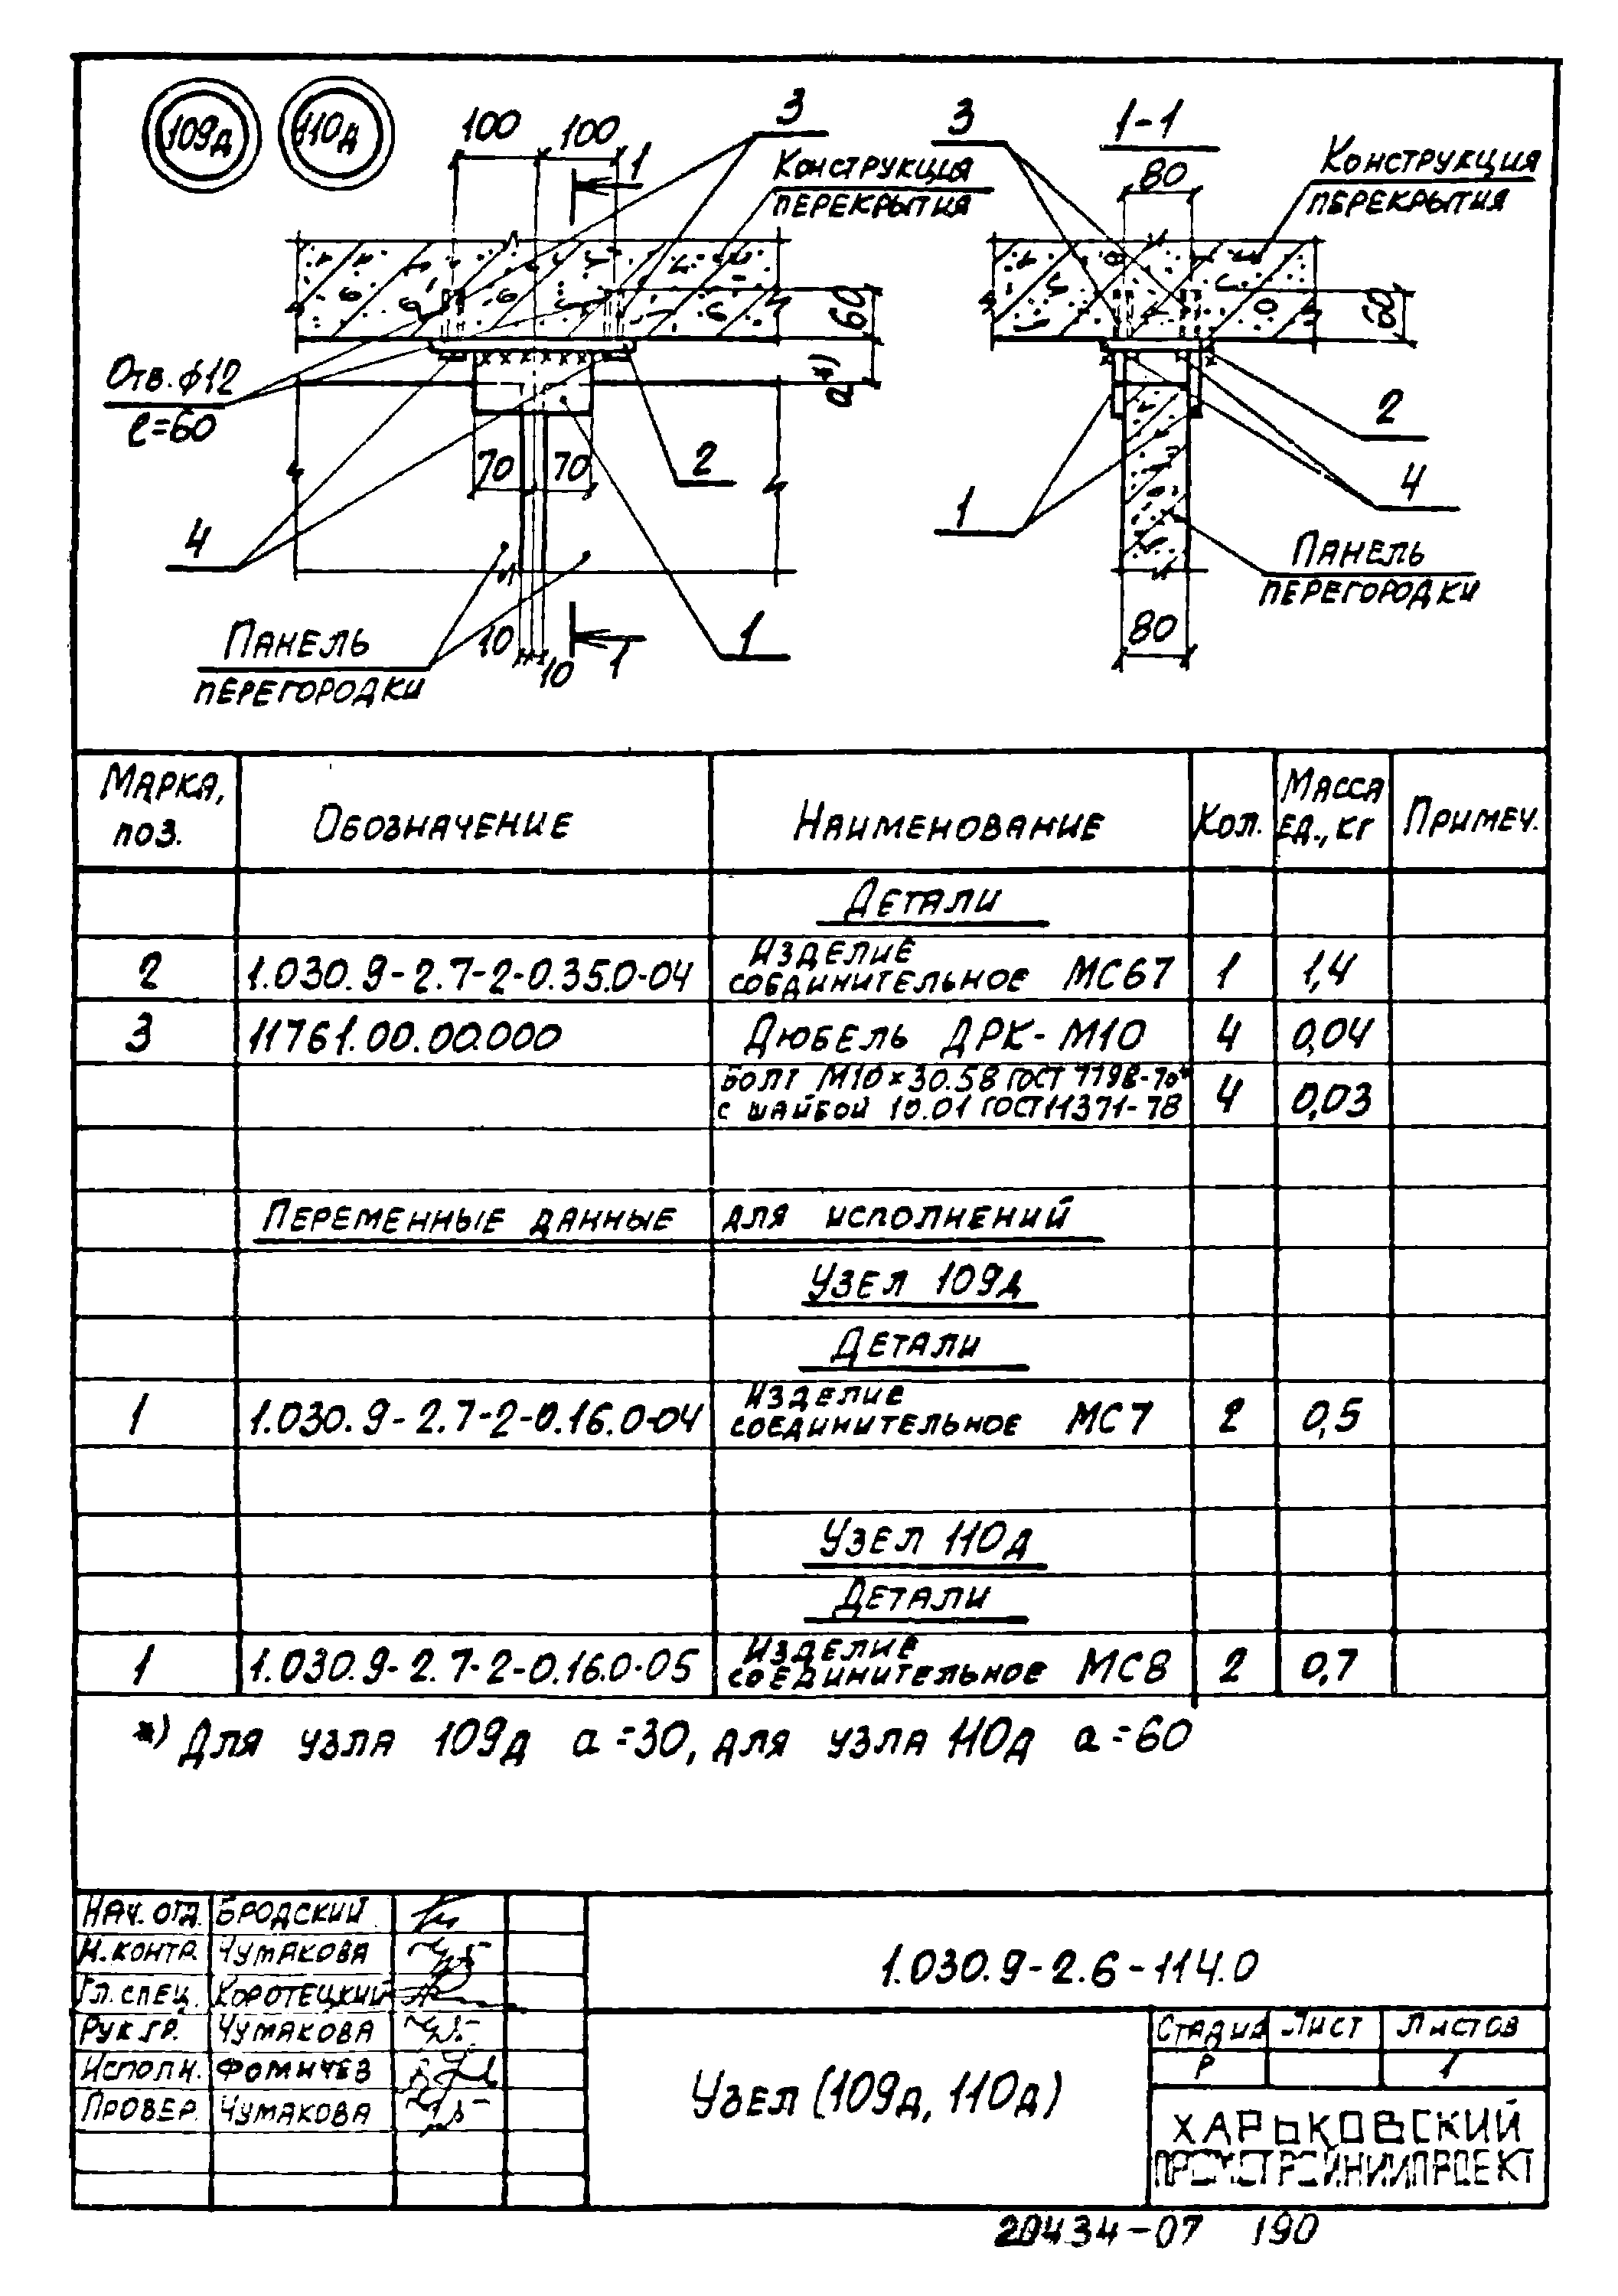 109д 110д
100 100
3
3
1-1
1
Конструкция
перекрытия
80
Конструкция
перекрытия
60
60
а*)
Отв. ф12
ℓ=60
2
70 70
2
4
4
1
Панель
перегородки
Панель
перегородки
10
10
1
1
80
Марка, поз. Обозначение Наименование Кол. Масса ед., кг Примеч.
Детали
2 1.030.9-2.7-2-0.35.0-04 Изделие соединительное МС67 1 1,4
3 11761.00.00.000 Дюбель ДРК-М10 4 0,04
Болт М10×30.58 ГОСТ 7798-70*
с шайбой 10.01 ГОСТ 11371-78 4 0,03
Переменные данные для исполнений
Узел 109д
Детали
1 1.030.9-2.7-2-0.16.0-04 Изделие соединительное МС7 2 0,5
Узел 110д
Детали
1 1.030.9-2.7-2-0.16.0-05 Изделие соединительное МС8 2 0,7
*) Для узла 109д а=30, для узла 110д а=60
Нач. отд. Бродский
Н. контр. Чумакова
Гл. спец. Коротецкий
Рук. гр. Чумакова
Исполн. Фомичев
Провер. Чумакова
1.030.9-2.6-114.0
Узел (109д, 110д)
Стадия Лист Листов
Р 1
Харьковский
Промстройниипроект
20434-07 190